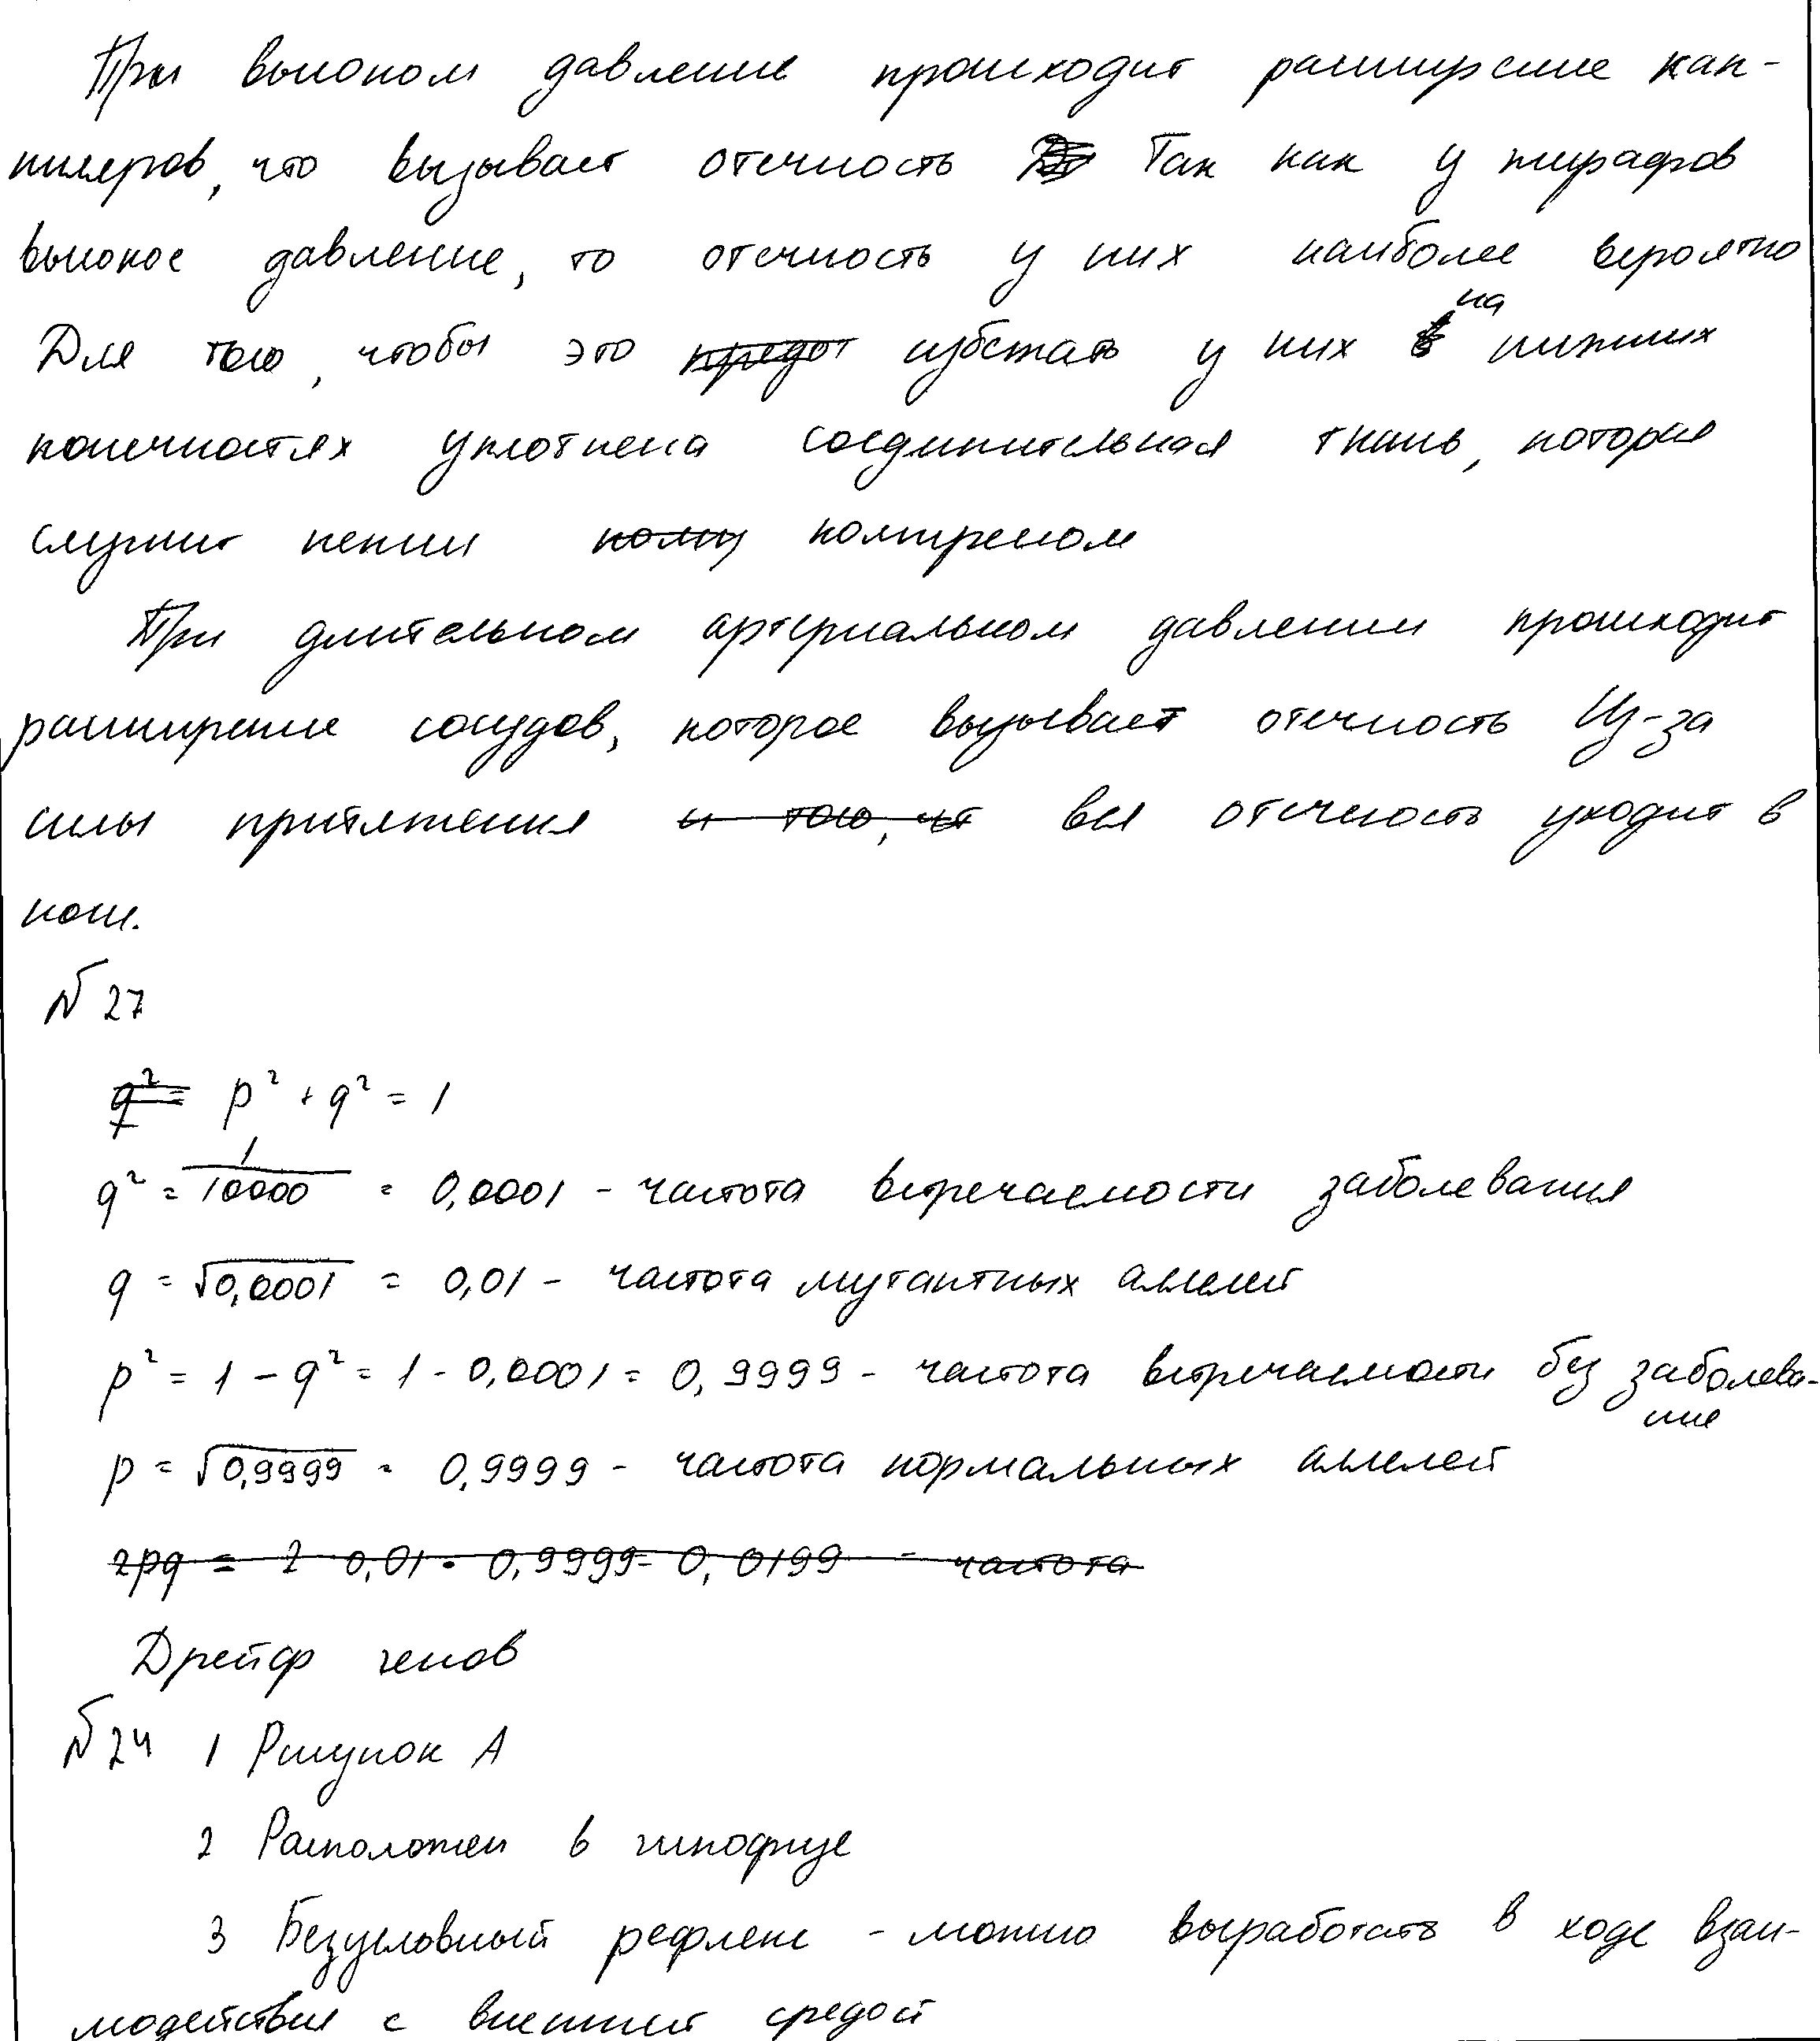 При высоком давление происходит расширение кап-
пиляров, что вызывает отечность Так как у жирафов
высокое давление, то отечность у них наиболее вероятно
Для того, чтобы это избежать у них на нижних
конечностях уплотнена соединительная ткань, которая
служит неким компресом
При длительном артериальном давлении происходит
расширение сосудов, которое вызывает отечность Из-за
силы притяжения и того, чт вся отечность уходит в
ноги.
№ 27
q² = p² + q² = 1
q² = 1/10000 = 0,0001 - частота встречаемости заболевания
q = √0,0001 = 0,01 - частота мутантных аллелей
p² = 1 - q² = 1 - 0,0001 = 0,9999 - частота встречаемости без заболева-
ние
p = √0,9999 = 0,9999 - частота нормальных аллелей
2pq = 2 0,01 · 0,9999 = 0,0199 - частота
Дрейф генов
№24 1 Рисунок А
2 Расположен в гипофизе
3 Безусловный рефлекс - можно выработать в ходе взаи-
модействия с внешней средой